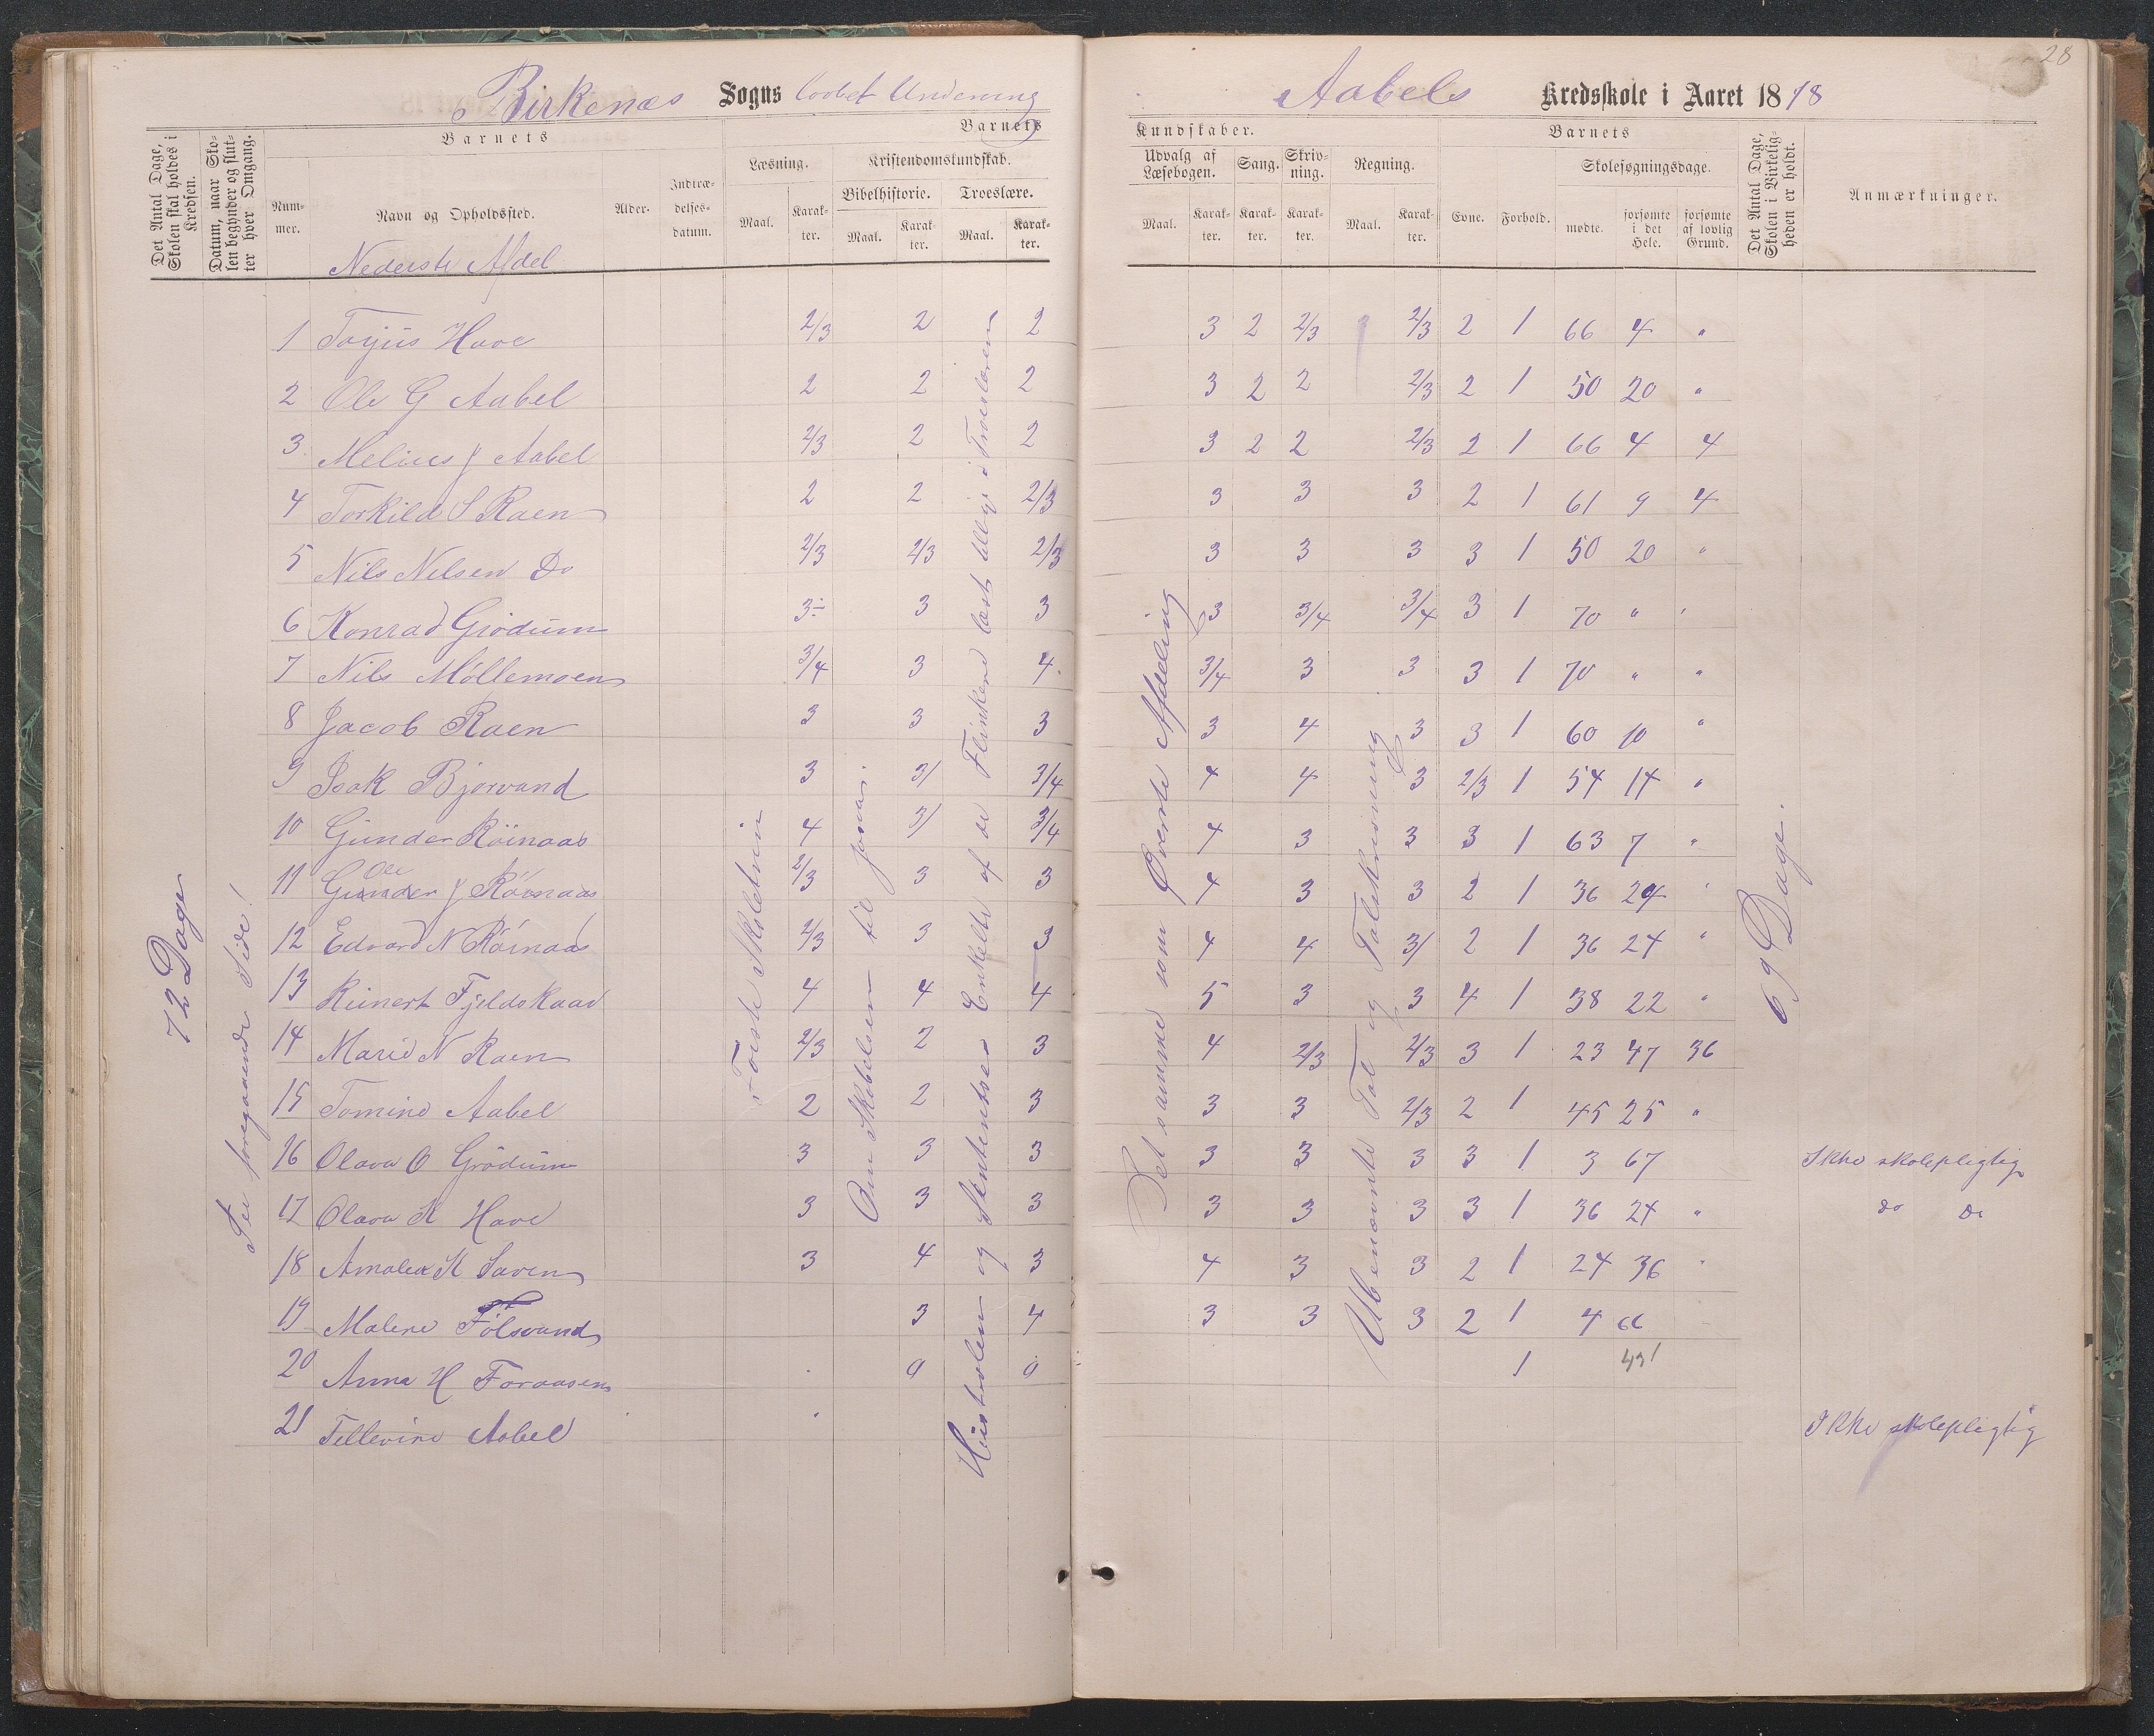 28
Birkenæs Sogns lovbet Underving
Aabels Kredsskole i Aaret 1878
Det Antal Dage, Skolen skal holdes i Kredsen.
Datum, naar Skolen begynder og slutter hver Omgang.
Barnets
Nummer.
Navn og Opholdssted.
Alder.
Indtrædelsesdatum.
Barnets
Læsning.
Maal.
Karakter.
Kristendomskundskab.
Bibelhistorie.
Maal.
Karakter.
Troeslære.
Maal.
Karakter.
Kundskaber.
Udvalg af Læsebogen.
Maal.
Karakter.
Sang.
Karakter.
Skrivning.
Karakter.
Regning.
Maal.
Karakter.
Barnets
Evne.
Forhold.
Skolesøgningsdage.
mødte.
forsømte i det Hele.
forsømte af lovlig Grund.
Det Antal Dage, Skolen i Virkeligheden er holdt.
Anmærkninger.
Nederste Afdel
1 Torjus Have 2/3 2 2 3 2 2/3 2/3 2 1 66 4 "
2 Ole G Aabel 2 2 2 3 2 2 2/3 2 1 50 20 "
3 Melius J Aabel 2/3 2 2 3 2 2 2/3 2 1 66 4 4
4 Torkild S Raen 2 2 2/3 3 3 3 2 1 61 9 4
5 Nils Nilsen Do 2/3 2/3 2/3 3 3 3 3 1 50 20 "
6 Konrad Grødum 3÷ 3 3 3 3/4 3/4 3 1 70 " "
7 Nils Møllemoen 3/4 3 4 3/4 3 3 3 1 70 " "
8 Jacob Raen 3 3 3 3 4 3 3 1 60 10 "
9 Isak Bjorvand 3 3/ 3/4 4 4 3 2/3 1 54 14 "
10 Gunder Röinaas 4 3/ 3/4 4 3 3 3 1 63 7 "
11 Gunder Ole J Röinaas 2/3 3 3 4 3 3 2 1 36 24 "
12 Edvard N Röinaas 2/3 3 3 4 4 3/ 2 1 36 24 "
13 Reinert Fjeldskaar 4 4 4 5 3 3 4 1 38 22 "
14 Marie N Raen 2/3 2 3 4 2/3 2/3 3 1 23 47 36
15 Tomine Aabel 2 2 3 3 3 2/3 2 1 45 25 "
16 Olava O Grödum 3 3 3 3 3 3 3 1 3 67 Ikke skolepligtig
17 Olava K Have 3 3 3 3 3 3 3 1 36 24 " do Do
18 Amalea K Saven 3 4 3 4 3 3 2 1 24 36 "
19 Malene Følsvand 3 4 3 3 3 2 1 4 66
20 Anna H Foraasen 0 0 1 431
21 Tellevine Aabel Ikke skolepligtig
72 Dage
See foregaaende Side!
Første Skoletrin
Om Skabelsen til
Historien og Sentenser Enkelte af de Flinkere læst tillige i Troeslæren
Det samme som Øverste Afdeling
Ubenævnte Tal og Talskrivning
69 Dage.